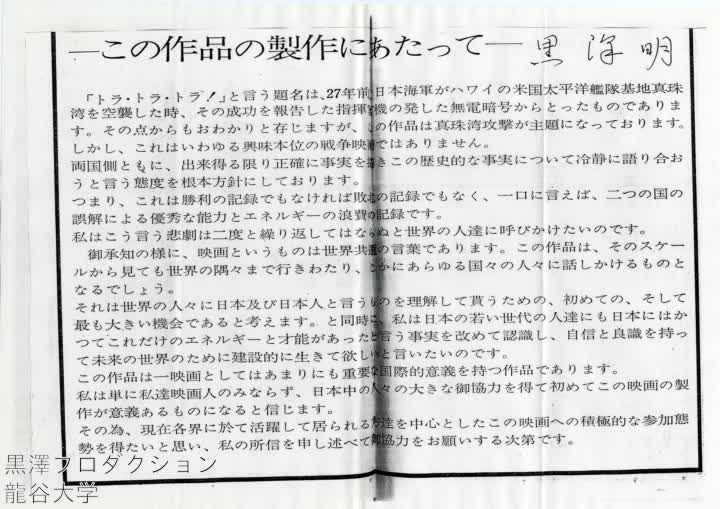 ―この作品の製作にあたって― 黒澤明
「トラ・トラ・トラ！」と言う題名は、27年前日本海軍がハワイの米国太平洋艦隊基地真珠
湾を空襲した時、その成功を報告した指揮官機の発した無電暗号からとったものでありま
す。その点からもおわかりと存じますが、この作品は真珠湾攻撃が主題になっております。
しかし、これはいわゆる興味本位の戦争映画ではありません。
両国側ともに、出来得る限り正確に事実を描きこの歴史的な事実について冷静に語り合お
うと言う態度を根本方針にしております。
つまり、これは勝利の記録でもなければ敗北の記録でもなく、一口に言えば、二つの国の
誤解による優秀な能力とエネルギーの浪費の記録です。
私はこう言う悲劇は二度と繰り返してはならぬと世界の人達に呼びかけたいのです。
御承知の様に、映画というものは世界共通の言葉であります。この作品は、そのスケー
ルから見ても世界の隅々まで行きわたり、たしかにあらゆる国々の人々に話しかけるものと
なるでしょう。
それは世界の人々に日本及び日本人と言うものを理解して貰うための、初めての、そして
最も大きい機会であると考えます。と同時に、私は日本の若い世代の人達にも日本にはか
つてこれだけのエネルギーと才能があったと言う事実を改めて認識し、自信と良識を持っ
て未来の世界のために建設的に生きて欲しいと言いたいのです。
この作品は一映画としてはあまりにも重要な国際的意義を持つ作品であります。
私は単に私達映画人のみならず、日本中の人々の大きな御協力を得て初めてこの映画の製
作が意義あるものになると信じます。
その為、現在各界に於て活躍して居られる方達を中心としたこの映画への積極的な参加態
勢を得たいと思い、私の所信を申し述べて御協力をお願いする次第です。
黒澤プロダクション
龍谷大学